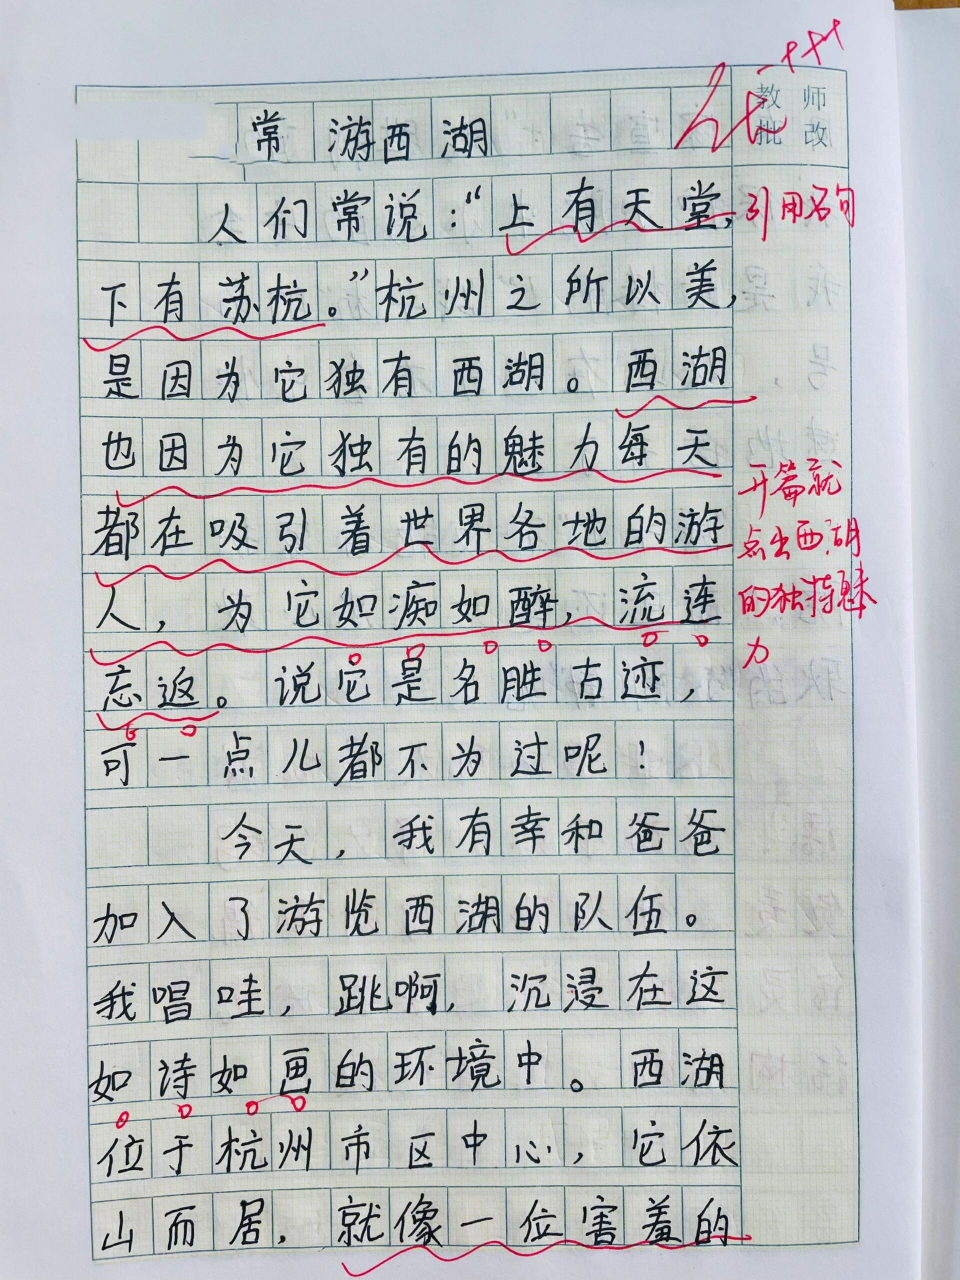 常游西湖
教师
批改
人们常说：“上有天堂，
引用名句
下有苏杭。”杭州之所以美，
是因为它独有西湖。西湖
也因为它独有的魅力每天
都在吸引着世界各地的游
人，为它如痴如醉，流连
开篇就
点出西湖
的独特魅
力
忘返。说它是名胜古迹，
可一点儿都不为过呢！
今天，我有幸和爸爸
加入了游览西湖的队伍。
我唱哇，跳啊，沉浸在这
如诗如画的环境中。西湖
位于杭州市区中心，它依
山而居，就像一位害羞的